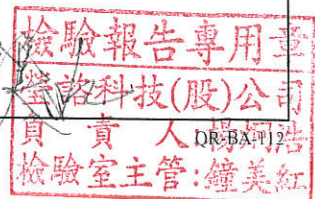 檢驗報告專用章
瑩諮科技(股)公司
負責人:楊炯浩
QR-BA-112
檢驗室主管:鐘美紅